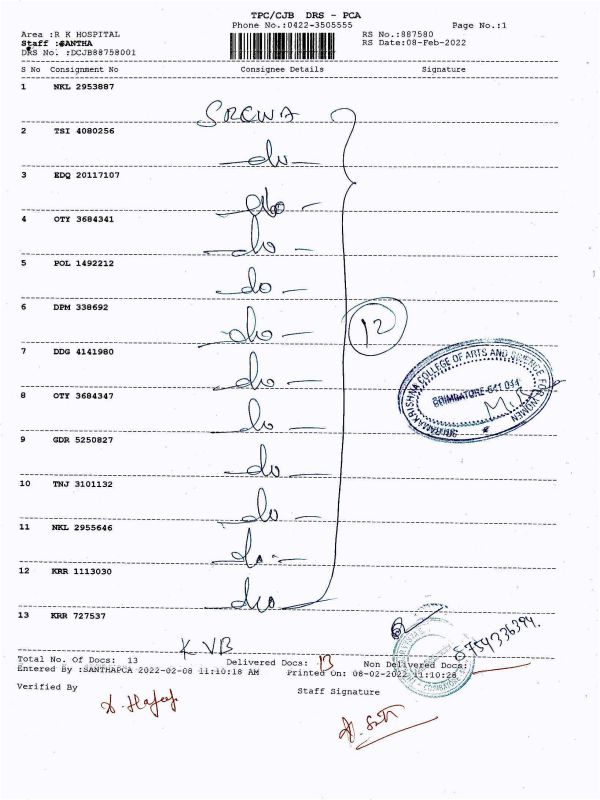 TPC/CJB DRS - PCA
Phone No.:0422-3505555 Page No.:1
Area :R K HOSPITAL RS No.:887580
Staff :SANTHA RS Date:08-Feb-2022
DRS No. :DCJB88758001
S No Consignment No Consignee Details Signature
1 NKL 2953887
SRCWA
2 TSI 4080256
do
3 EDQ 20117107
do
4 OTY 3684341
do
5 POL 1492212
do
6 DPM 338692
do 12
7 DDG 4141980
do
8 OTY 3684347
do
9 GDR 5250827
do
10 TNJ 3101132
do
11 NKL 2955646
do
12 KRR 1113030
do
13 KRR 727537
KVB
SRI RAMAKRISHNA COLLEGE OF ARTS AND SCIENCE FOR WOMEN
COIMBATORE-641 044
8754336394.
Total No. Of Docs: 13 Delivered Docs: 13 Non Delivered Docs:
Entered By :SANTHAPCA 2022-02-08 11:10:18 AM Printed On: 08-02-2022 11:10:28
Verified By Staff Signature